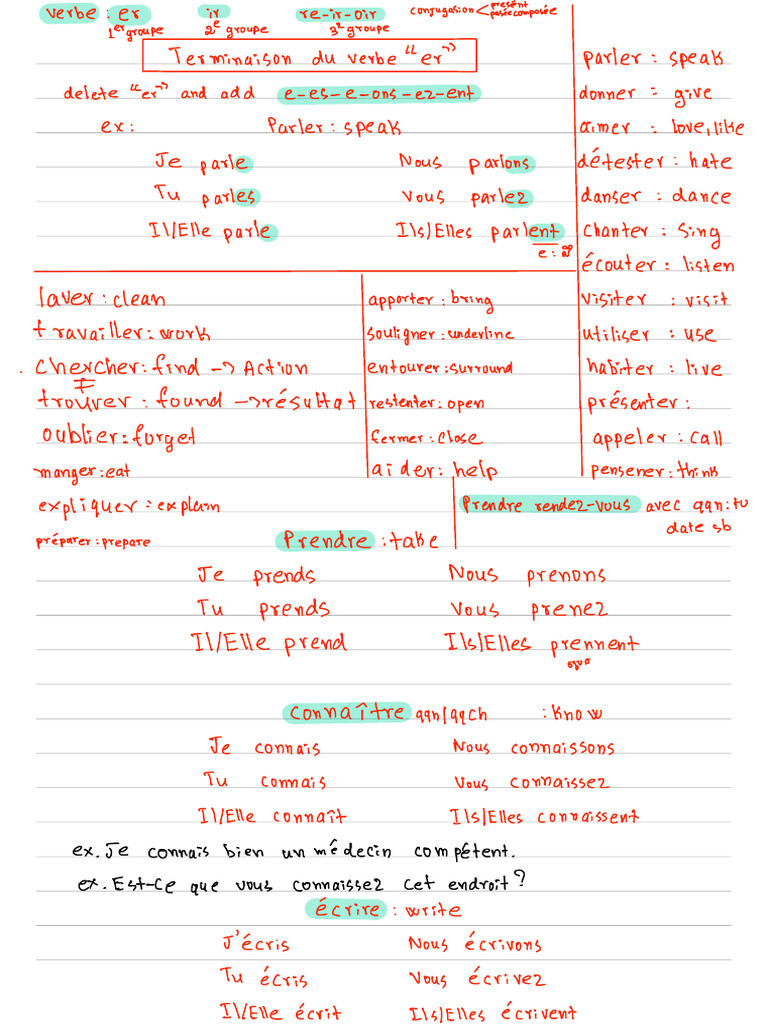 verbe : er ir re-ir-oir conjugasion < présent
passé composée
1er groupe 2e groupe 3e groupe
Terminaison du verbe "er"
delete "er" and add e-es-e-ons-ez-ent
ex: Parler : speak
Je parle Nous parlons
Tu parles Vous parlez
Il/Elle parle Ils/Elles parlent
parler : speak
donner = give
aimer = love, like
détester : hate
danser : dance
chanter : sing
écouter : listen
visiter : visit
utiliser : use
habiter : live
présenter :
appeler : call
pensener : think
laver : clean
travailler : work
chercher : find -> Action
trouver : found -> résultat
oublier : forget
manger : eat
expliquer : explain
préparer : prepare
apporter : bring
souligner : underline
entourer : surround
restenter : open
fermer : close
aider : help
Prendre rendez-vous avec qqn : tu
date sb
Prendre : take
Je prends Nous prenons
Tu prends Vous prenez
Il/Elle prend Ils/Elles prennent
connaître qqn/qqch : know
Je connais Nous connaissons
Tu connais Vous connaissez
Il/Elle connaît Ils/Elles connaissent
ex. Je connais bien un médecin compétent.
ex. Est-ce que vous connaissez cet endroit ?
écrire : write
J'écris Nous écrivons
Tu écris Vous écrivez
Il/Elle écrit Ils/Elles écrivent